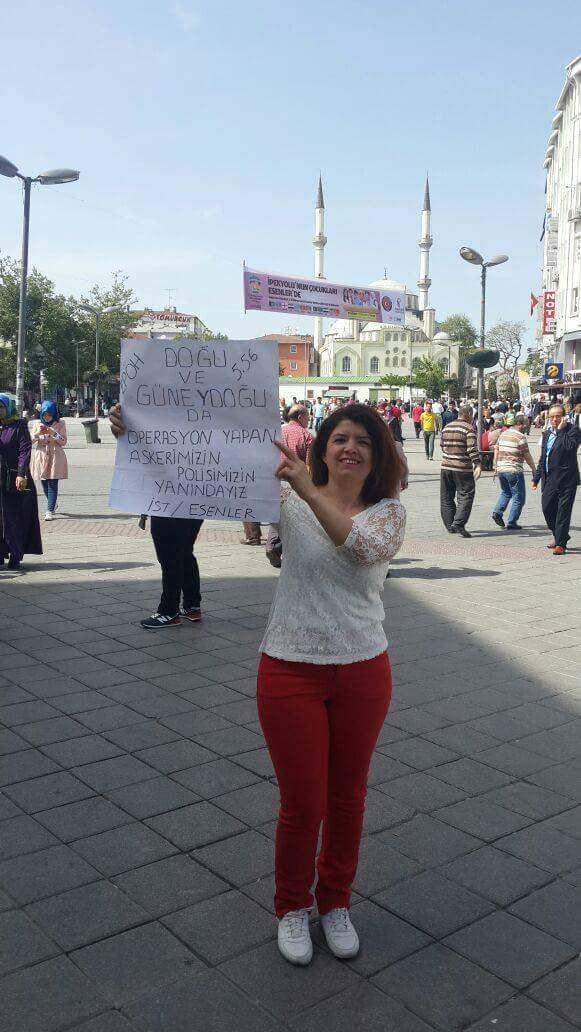 İPEKYOLU'NUN ÇOCUKLARI
ESENLER'DE
DOĞU
VE
GÜNEYDOĞU
DA
OPERASYON YAPAN
ASKERİMİZİN
POLİSİMİZİN
YANINDAYIZ
İST/ESENLER
5,56
NOTER